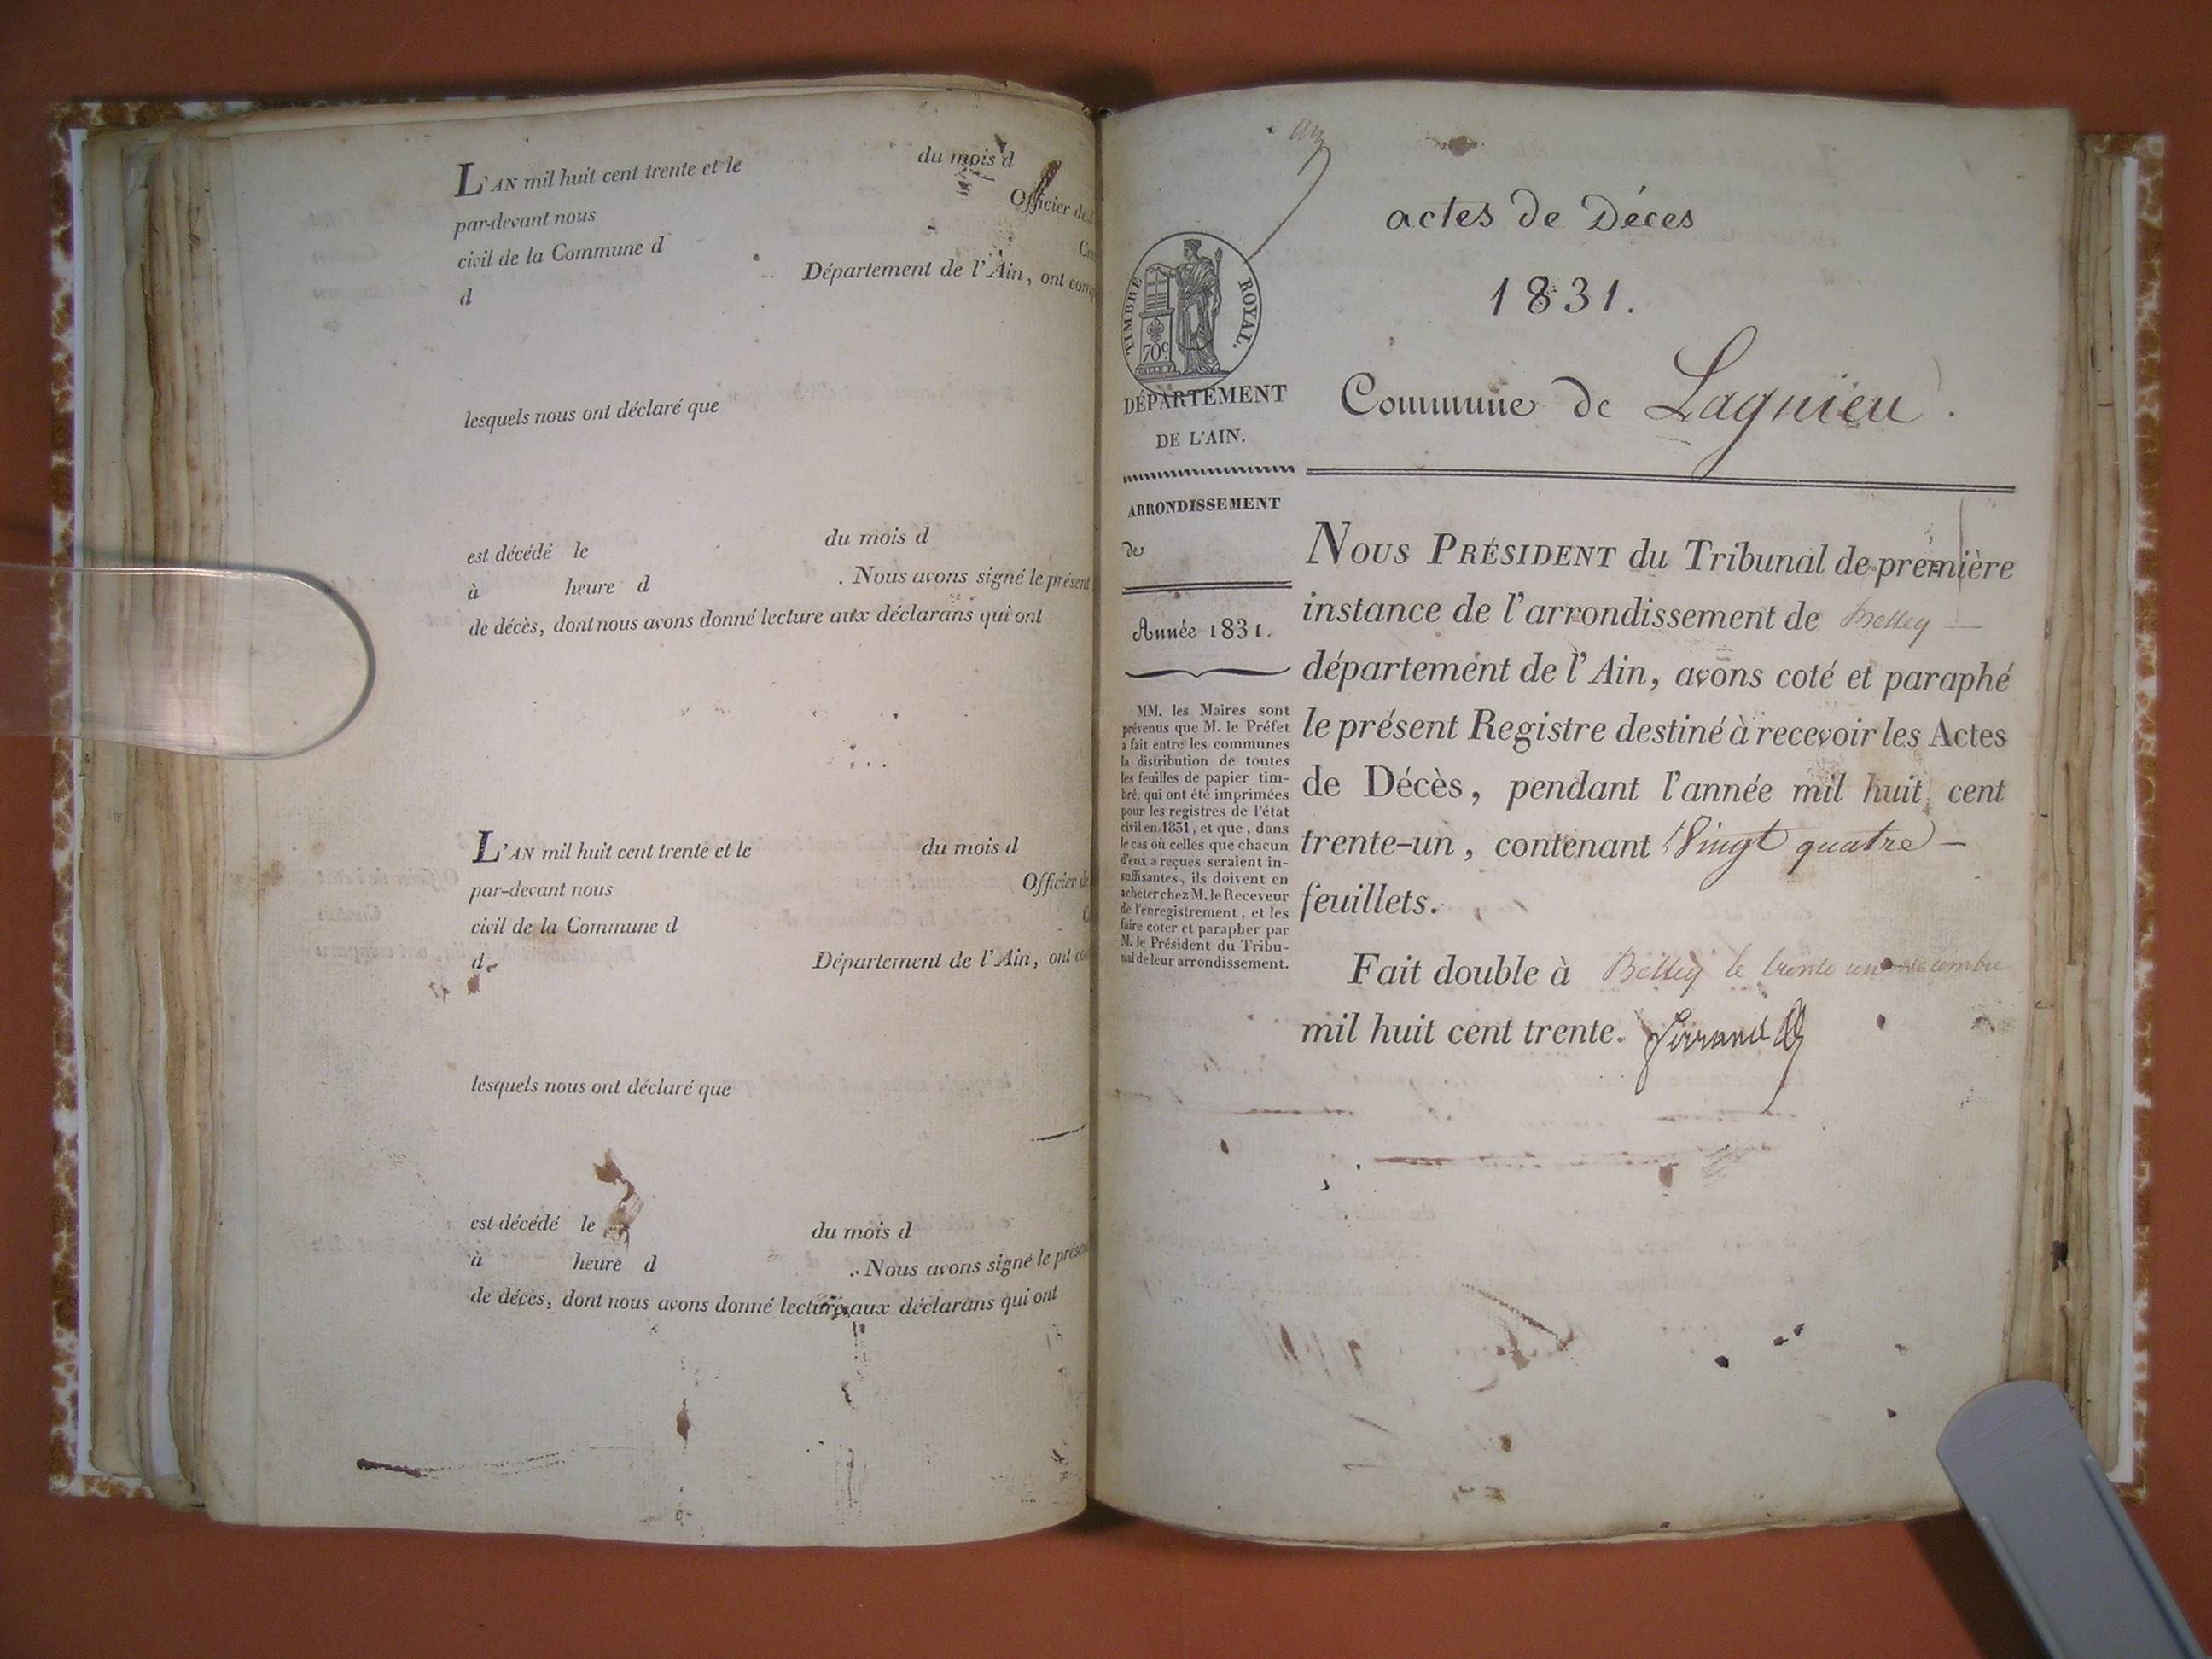 L'AN mil huit cent trente et le du mois d
par-devant nous Officier de
civil de la Commune d
d Département de l'Ain, ont
lesquels nous ont déclaré que
est décédé le du mois d
à heure d . Nous avons signé le présent
de décès, dont nous avons donné lecture aux déclarans qui ont
L'AN mil huit cent trente et le du mois d
par-devant nous Officier de
civil de la Commune d
d Département de l'Ain, ont
lesquels nous ont déclaré que
est décédé le du mois d
à heure d . Nous avons signé le
de décès, dont nous avons donné lecture aux déclarans qui ont
actes de Déces
1831.
Commune de Lagnieu.
TIMBRE ROYAL.
70c
DÉPARTEMENT
DE L'AIN.
ARRONDISSEMENT
de
Année 1831.
MM. les Maires sont
prévenus que M. le Préfet
a fait entre les communes
la distribution de toutes
les feuilles de papier tim-
bré, qui ont été imprimées
pour les registres de l'état
civil en 1831, et que, dans
le cas où celles que chacun
d'eux a reçues seraient in-
suffisantes, ils doivent en
acheter chez M. le Receveur
de l'enregistrement, et les
faire coter et parapher par
M. le Président du Tribu-
nal de leur arrondissement.
NOUS PRÉSIDENT du Tribunal de première
instance de l'arrondissement de Belley —
département de l'Ain, avons coté et paraphé
le présent Registre destiné à recevoir les Actes
de Décès, pendant l'année mil huit cent
trente-un, contenant Vingt quatre —
feuillets.
Fait double à Belley le trente un décembre
mil huit cent trente.